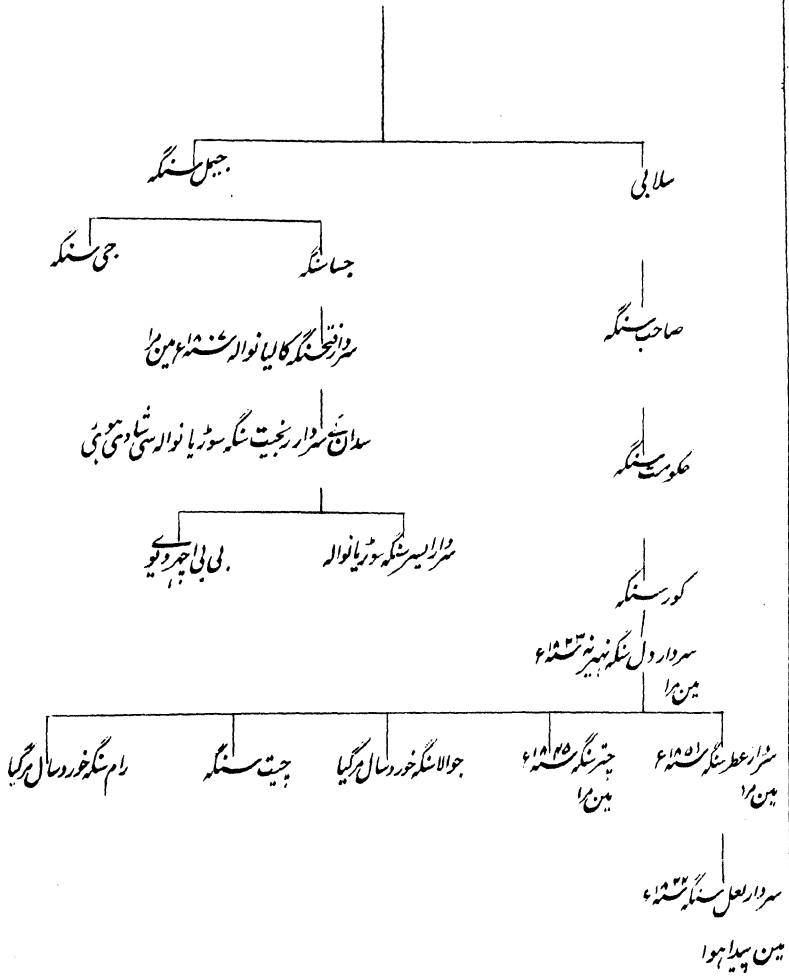 سلابی
جیمل سنگہ
جسا سنگہ
جی سنگہ
صاحب سنگہ
سردار فتح سنگہ کالیانوالہ سنہ ۱۸۰۷ء مین مرا
حکومت سنگہ
سدان نے سردار رنجیت سنگہ سوڑیانوالہ سی شادی ہوئی
سردار ایسر سنگہ سوڑیانوالہ
بی بی
کور سنگہ
سردار دل سنگہ نہیرنہ سنہ ۱۸۲۳ء
مین مرا
سردار عطر سنگہ سنہ ۱۸۵۱ء
مین مرا
چتر سنگہ سنہ ۱۸۴۵ء
مین مرا
جوالا سنگہ خورد سال مرگیا
چیت سنگہ
رام سنگہ خورد سال مرگیا
سردار لعل سنگہ سنہ ۱۸۲۲ء
مین پیدا ہوا